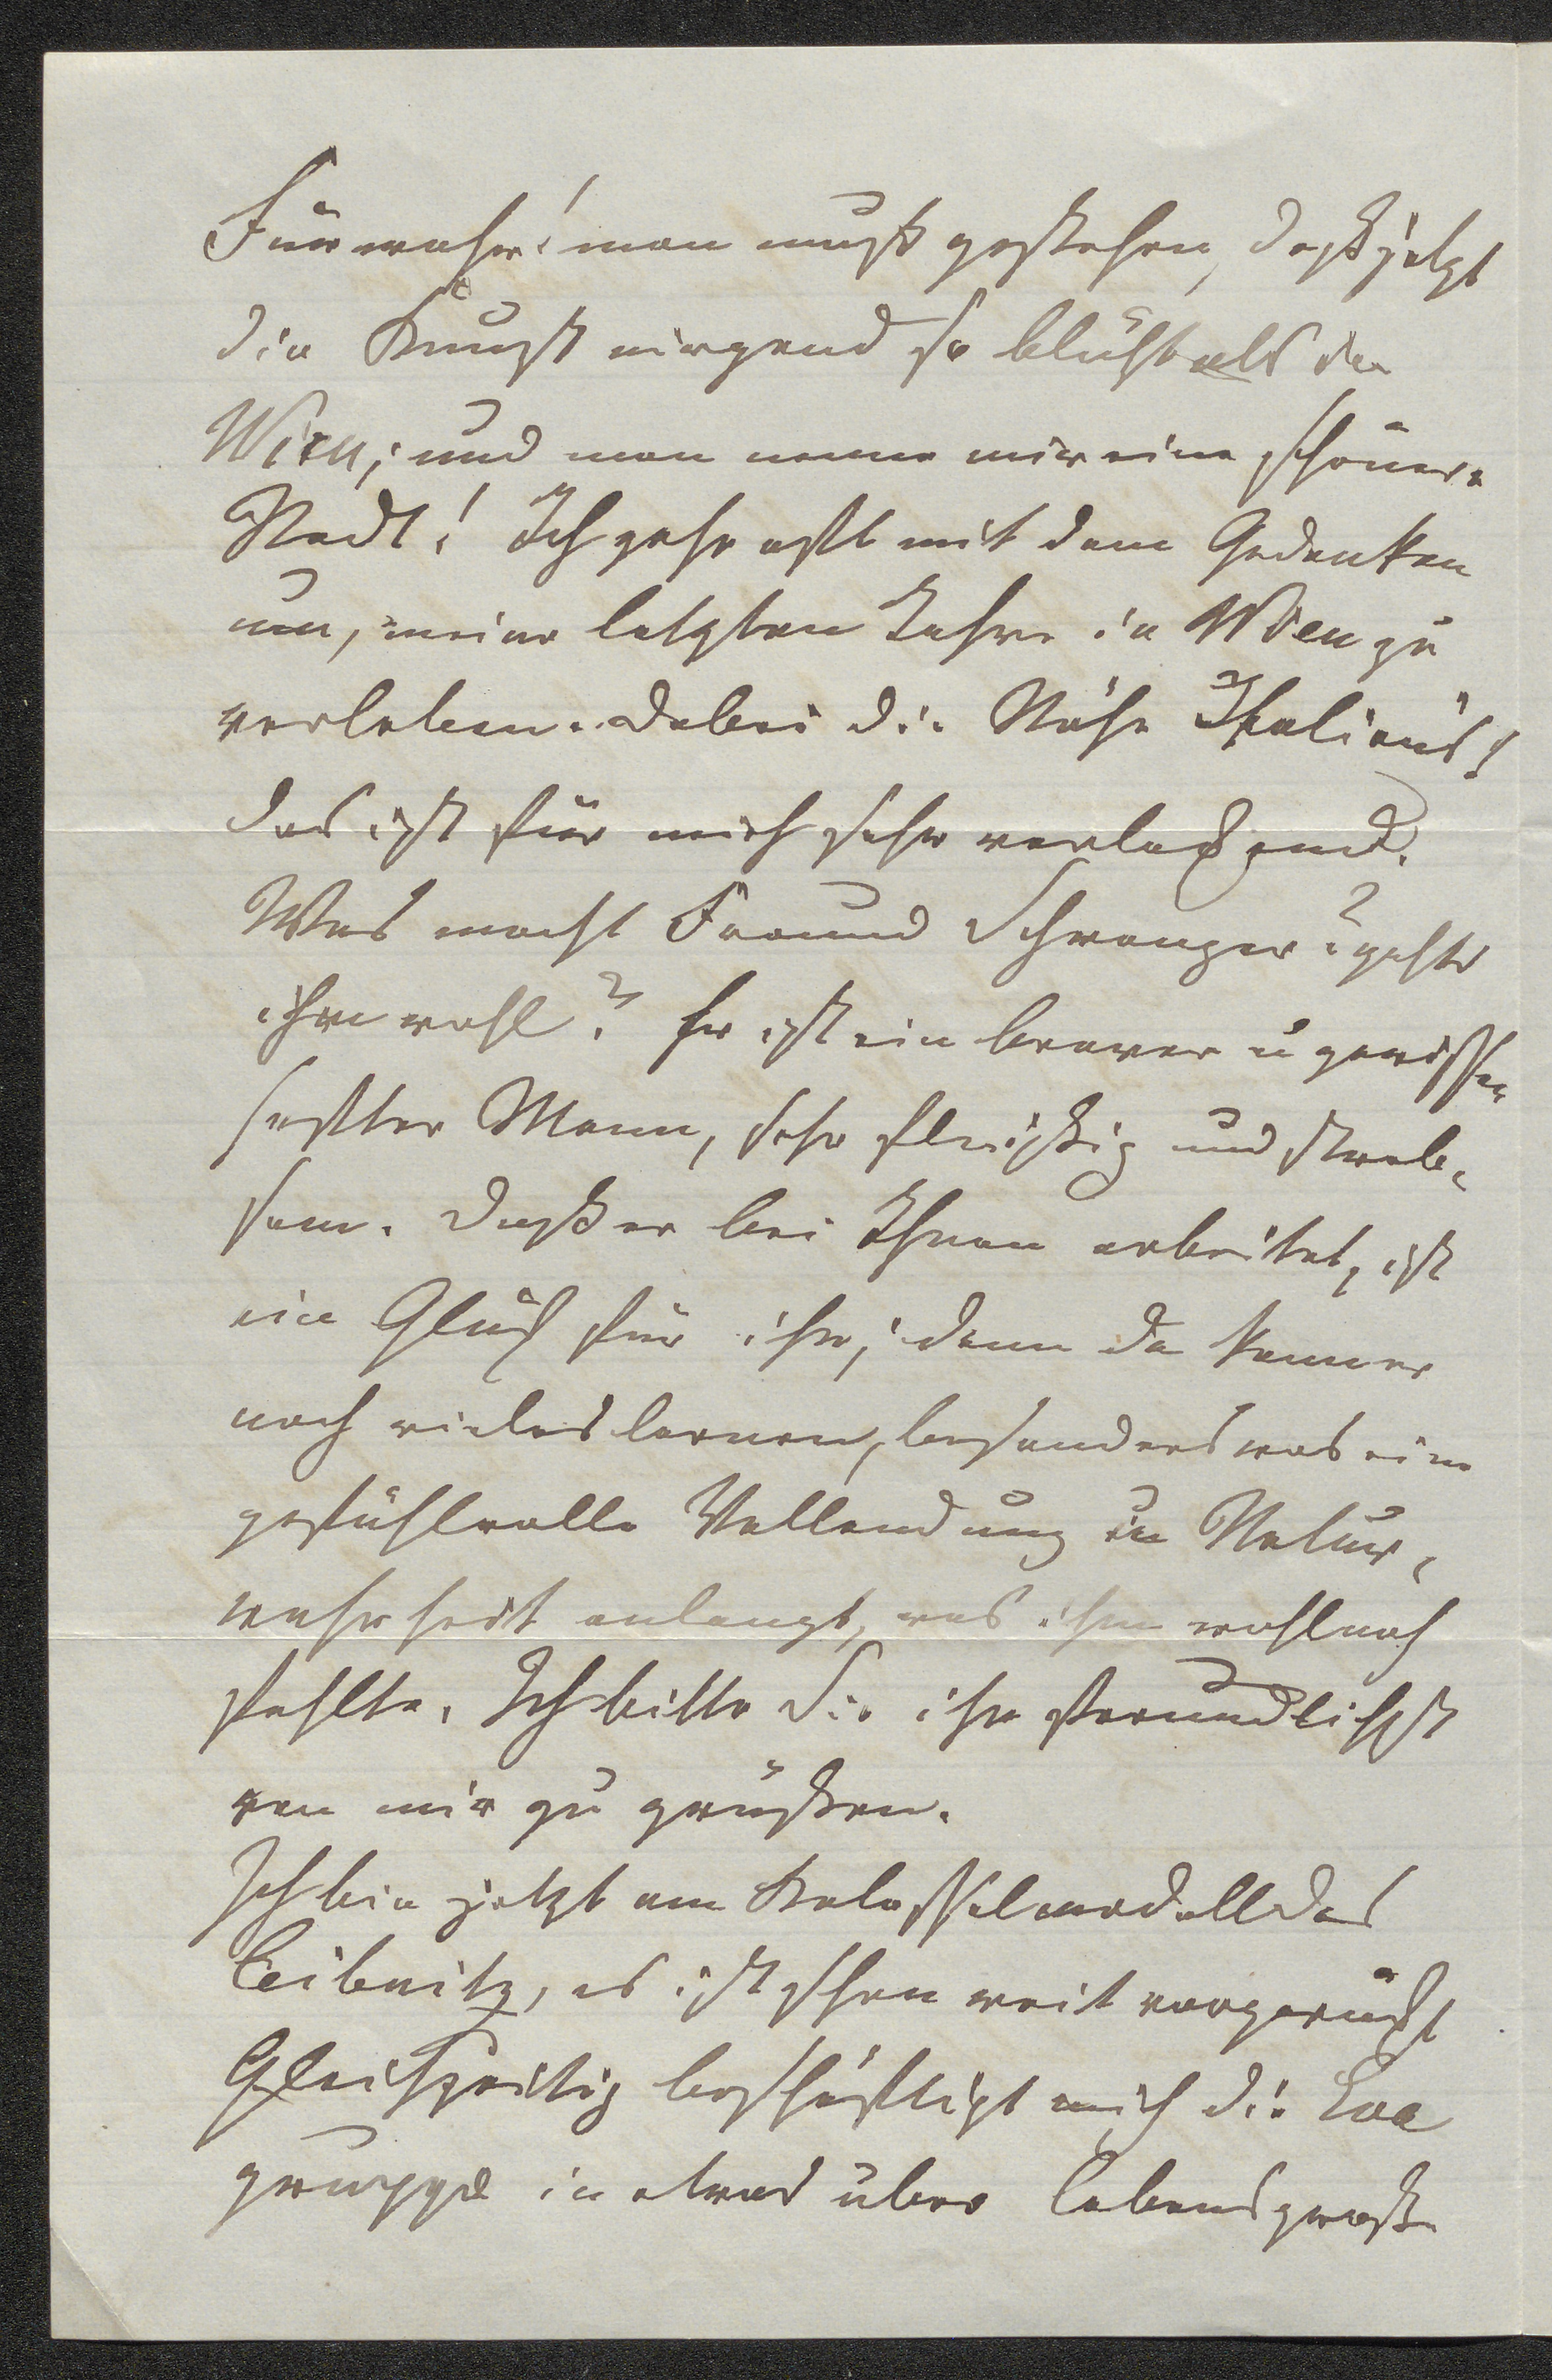 Fürwahr! man muß gestehen, daß jetzt
die Kunst nirgend so blüht als in
Wien; und man nenne mir eine schönere
Stadt! Ich gehe oft mit dem Gedanken
um, meine letzten Jahre in Wien zu
verleben. Dabei die Nähe Italiens!
das ist für mich sehr verlockend.
Was macht Freund Schwenzer? gehts
ihm wohl? Er ist ein braver u gewissen-
hafter Mann, sehr fleißig und streb-
sam. Daß er bei Ihnen arbeitet, ist
ein Glück für ihn; denn da kann er
noch vieles lernen, besonders was eine
gefühlvolle Vollendung in Natur-
wahrheit anlangt, was ihm wohl noch
fehlte. Ich bitte Sie ihn freundlichst
von mir zu grüßen.
Ich bin jetzt am Kolossalmodell des
Leibnitz, es ist schon weit vorgerückt
Gleichzeitig beschäftigt mich die Eva
gruppe in etwas über lebensgroße